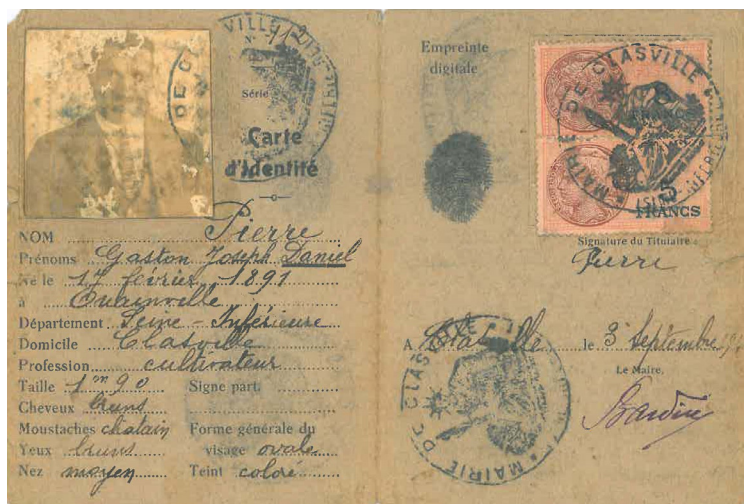 Nº 112
Série
Carte
d'Identité
NOM Pierre
Prénoms Gaston Joseph Daniel
Né le 17 février 1891
à Ouainville
Département Seine-Inférieure
Domicile Clasville
Profession cultivateur
Taille 1m90 Signe part.
Cheveux bruns
Moustaches chatain Forme générale du
Yeux bruns visage ovale
Nez moyen Teint coloré
Empreinte
digitale
MAIRIE DE CLASVILLE
5
FRANCS
Signature du Titulaire :
Pierre
A Clasville le 3 Septembre
Le Maire,
MAIRIE DE CLASVILLE